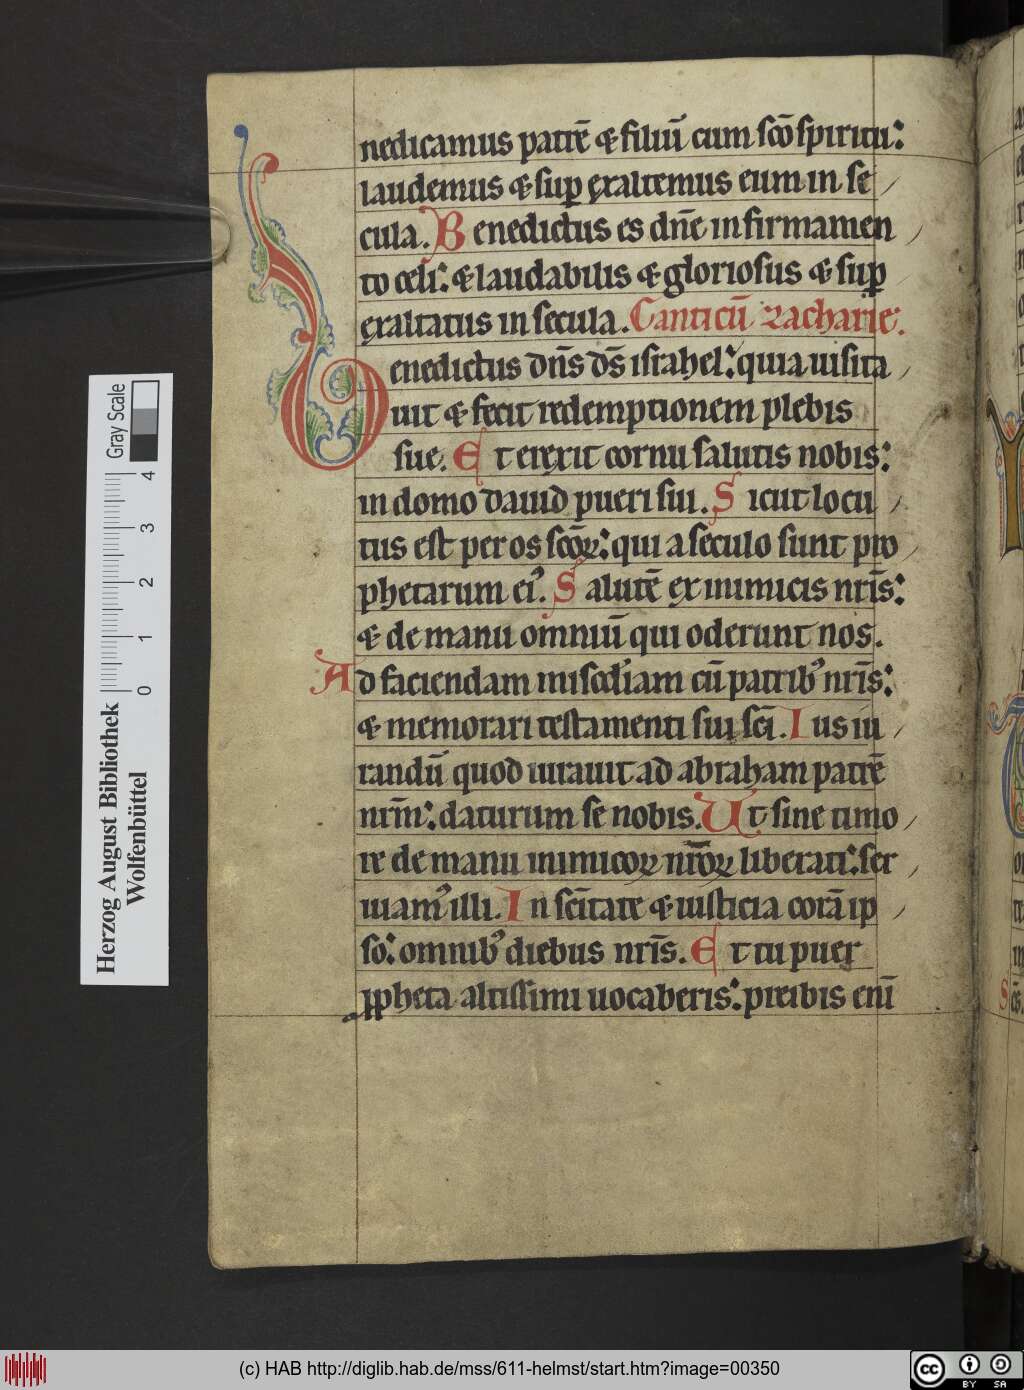 nedicamus patrē & filiū cum scō spiritu:
laudemus & suꝑ exaltemus eum in se
cula. Benedictus es dn̄e in firmamen
to celi: & laudabilis & gloriosus & suꝑ
exaltatus in secula. Canticū zacharie.
Benedictus dn̄s ds̄ israhel: quia uisita
uit & fecit redemptionem plebis
sue. Et erexit cornu salutis nobis:
in domo dauid pueri sui. Sicut locu
tus est per os scōꝝ: qui a seculo sunt pro
phetarum eiꝰ. Salutē ex inimicis nrīs:
& de manu omniū qui oderunt nos.
Ad faciendam misc̄diam cū patribꝰ nrīs:
& memorari testamenti sui sc̄i. Ius iu
randū quod iurauit ad abraham patrē
nrm̄: daturum se nobis. Ut sine timo
re de manu inimicoꝝ nr̄oꝝ liberati: ser
uiamꝰ illi. In sc̄itate & iusticia corā ip
so: omnibꝰ diebus nrīs. Et tu puer
ꝓpheta altissimi uocaberis: preibis eni̅
Herzog August Bibliothek
Wolfenbüttel
Gray Scale
0 1 2 3 4
(c) HAB http://diglib.hab.de/mss/611-helmst/start.htm?image=00350
cc BY SA